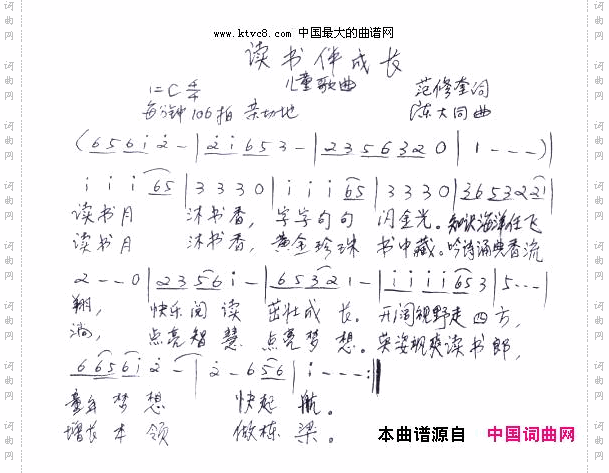 www.ktvc8.com 中国最大的曲谱网
读书伴成长
儿童歌曲
1=C 4/4 范修奎词
每分钟106拍 亲切地 陈大同曲
(6 5 6 i 2 - | 2 i 6 5 3 - | 2 3 5 6 3 2 0 | 1 - - - )|
i i i 6 5 | 3 3 3 0 | i i i 6 5 | 3 3 3 0 | 3 6 5 3 2 2 1 |
读书月 沐书香, 字字句句 闪金光。知识海洋任飞
读书月 沐书香, 黄金珍珠 书中藏。吟诗诵典香流
2 - - 0 | 2 3 5 6 i - | 6 5 3 2 1 - | i i i i 6 5 3 | 5 - - - |
翔, 快乐阅读 茁壮成长。开阔视野走四方,
淌, 点亮智慧 点亮梦想。英姿飒爽读书郎,
6 6 5 6 i 2 - | 2 - 6 5 6 | i - - - :||
童年梦想 快起航。
增长本领 做栋梁。
本曲谱源自 中国词曲网
词曲网